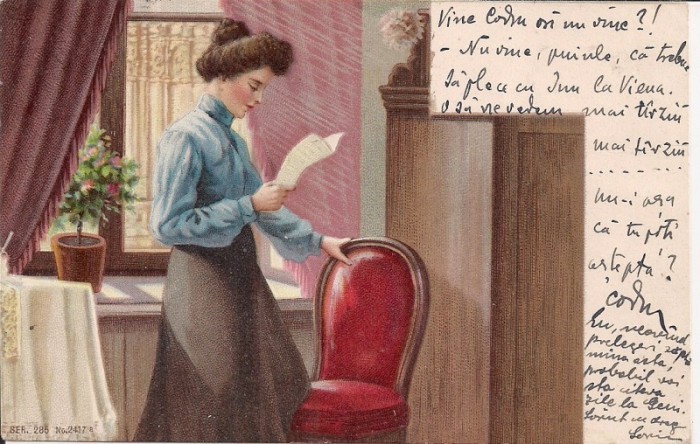 Vine Codru ori nu vine?!
- Nu vine, puiule, că trebue
să plece cu Dnu la Viena.
O să ne vedem mai tîrziu
mai tîrziu
......
nu-i așa
că tu poți
aștepta!?
Codru
Eu, neavînd
prelegeri
mina asta,
probabil voi
sta cîteva
zile la
Sărut cu drag
SER. 286 No. 2417